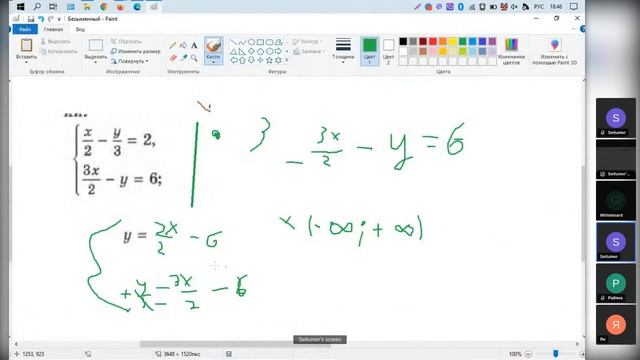 Безымянный - Paint
РУС 18:46
Файл Главная Вид
Вставить Вырезать Копировать Буфер обмена
Выделить Обрезать Изменить размер Повернуть Изображение
Инструменты
Кисти
Контур Заливка Фигуры
Толщина
Цвет 1 Цвет 2 Цвета
Изменение цветов
Изменить с помощью Paint 3D
x/2 - y/3 = 2,
3x/2 - y = 6;
} - 3x/2 - y = 6
y = 2x/2 - 6
x (-∞; +∞)
+ y/x = 3x/2 - 6
S
Seitumer
Seitumer's ...
Whiteboard
S
Seitumer
P
Я
Seitumer's screen
1253, 923
3648 × 1520пкс
100%